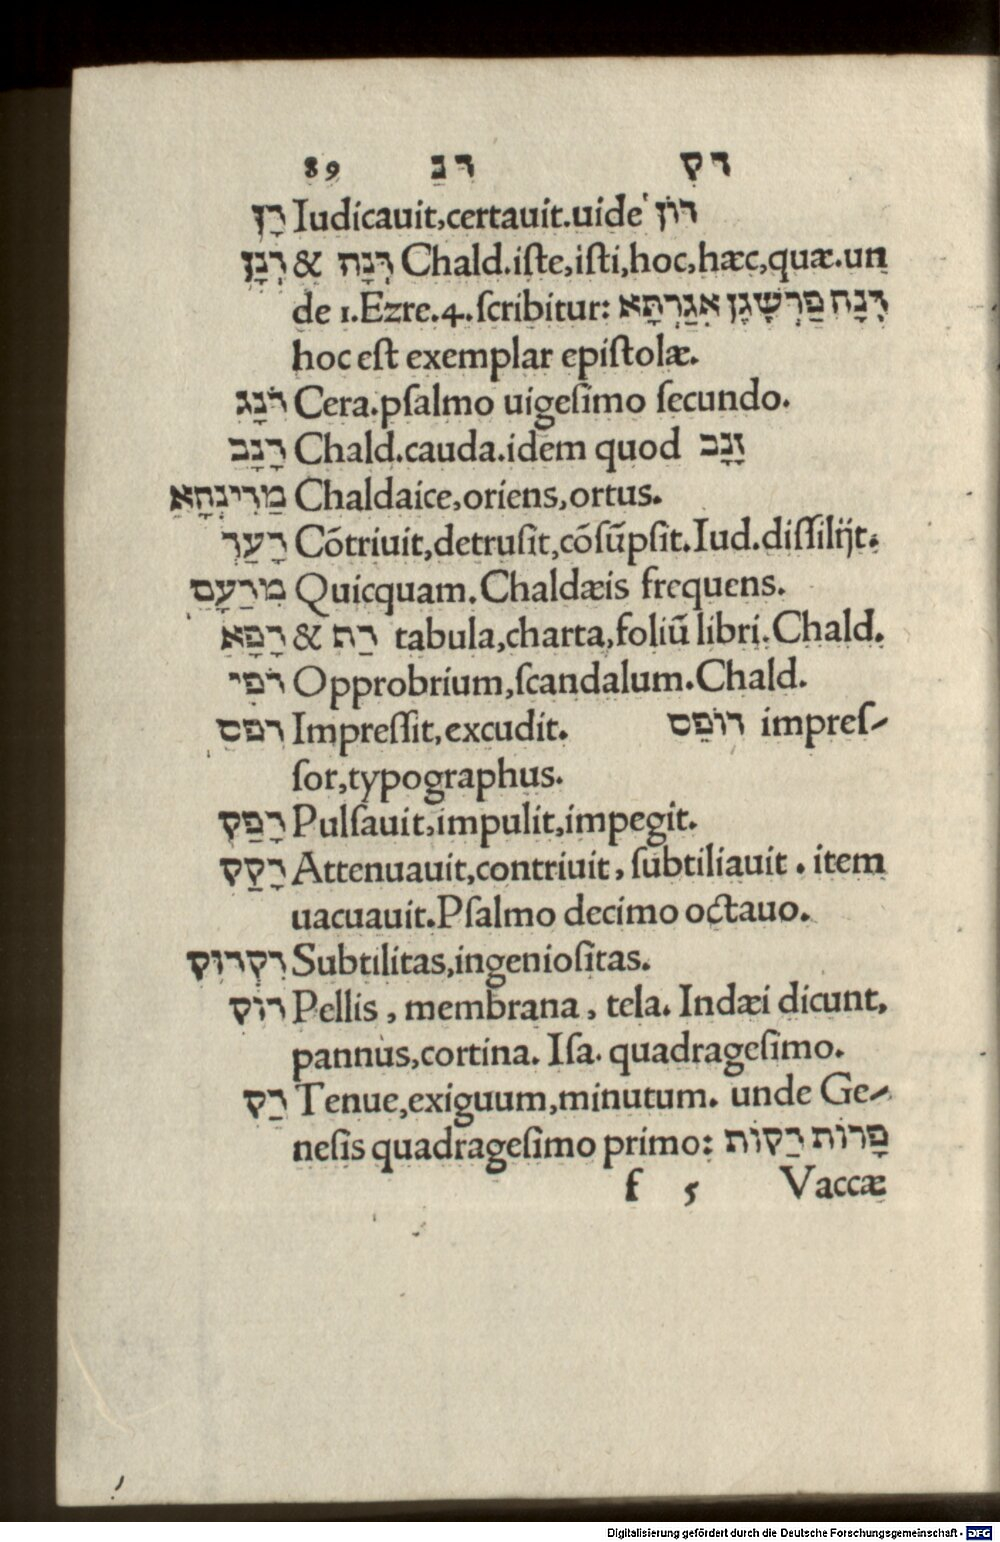 89 דנ דק
דָן Iudicauit,certauit.uide דון
דְנָן & דְּנָה Chald.iſte,iſti,hoc,hæc,quæ.un
de 1.Ezre.4.ſcribitur: דְּנָה פַּרְשֶׁגֶן אִגַּרְתָּא
hoc eſt exemplar epiſtolæ.
דֹנָג Cera.pſalmo uigeſimo ſecundo.
דָנָב Chald.cauda.idem quod זָנָב
מַדִינְחָא Chaldaice,oriens,ortus.
דָעַך Cõtriuit,detruſit,cõſũpſit.Iud.diſſilijt.
מִדַעָם Quicquam.Chaldæis frequens.
דָפָא & דַף tabula,charta,foliũ libri.Chald.
דֹפִי Opprobrium,ſcandalum.Chald.
דפס Impreſſit,excudit. דוֹפֵס impreſ-
ſor,typographus.
דָפַק Pulſauit,impulit,impegit.
דָקַק Attenuauit,contriuit, ſubtiliauit. item
uacuauit.Pſalmo decimo octauo.
דִקְדוּק Subtilitas,ingenioſitas.
דוֹק Pellis, membrana, tela. Indæi dicunt,
pannus,cortina. Iſa. quadrageſimo.
דַק Tenue,exiguum,minutum. unde Ge-
neſis quadrageſimo primo: פָּרוֹת דַקוֹת
f 5 Vaccæ
Digitalisierung gefördert durch die Deutsche Forschungsgemeinschaft - DFG